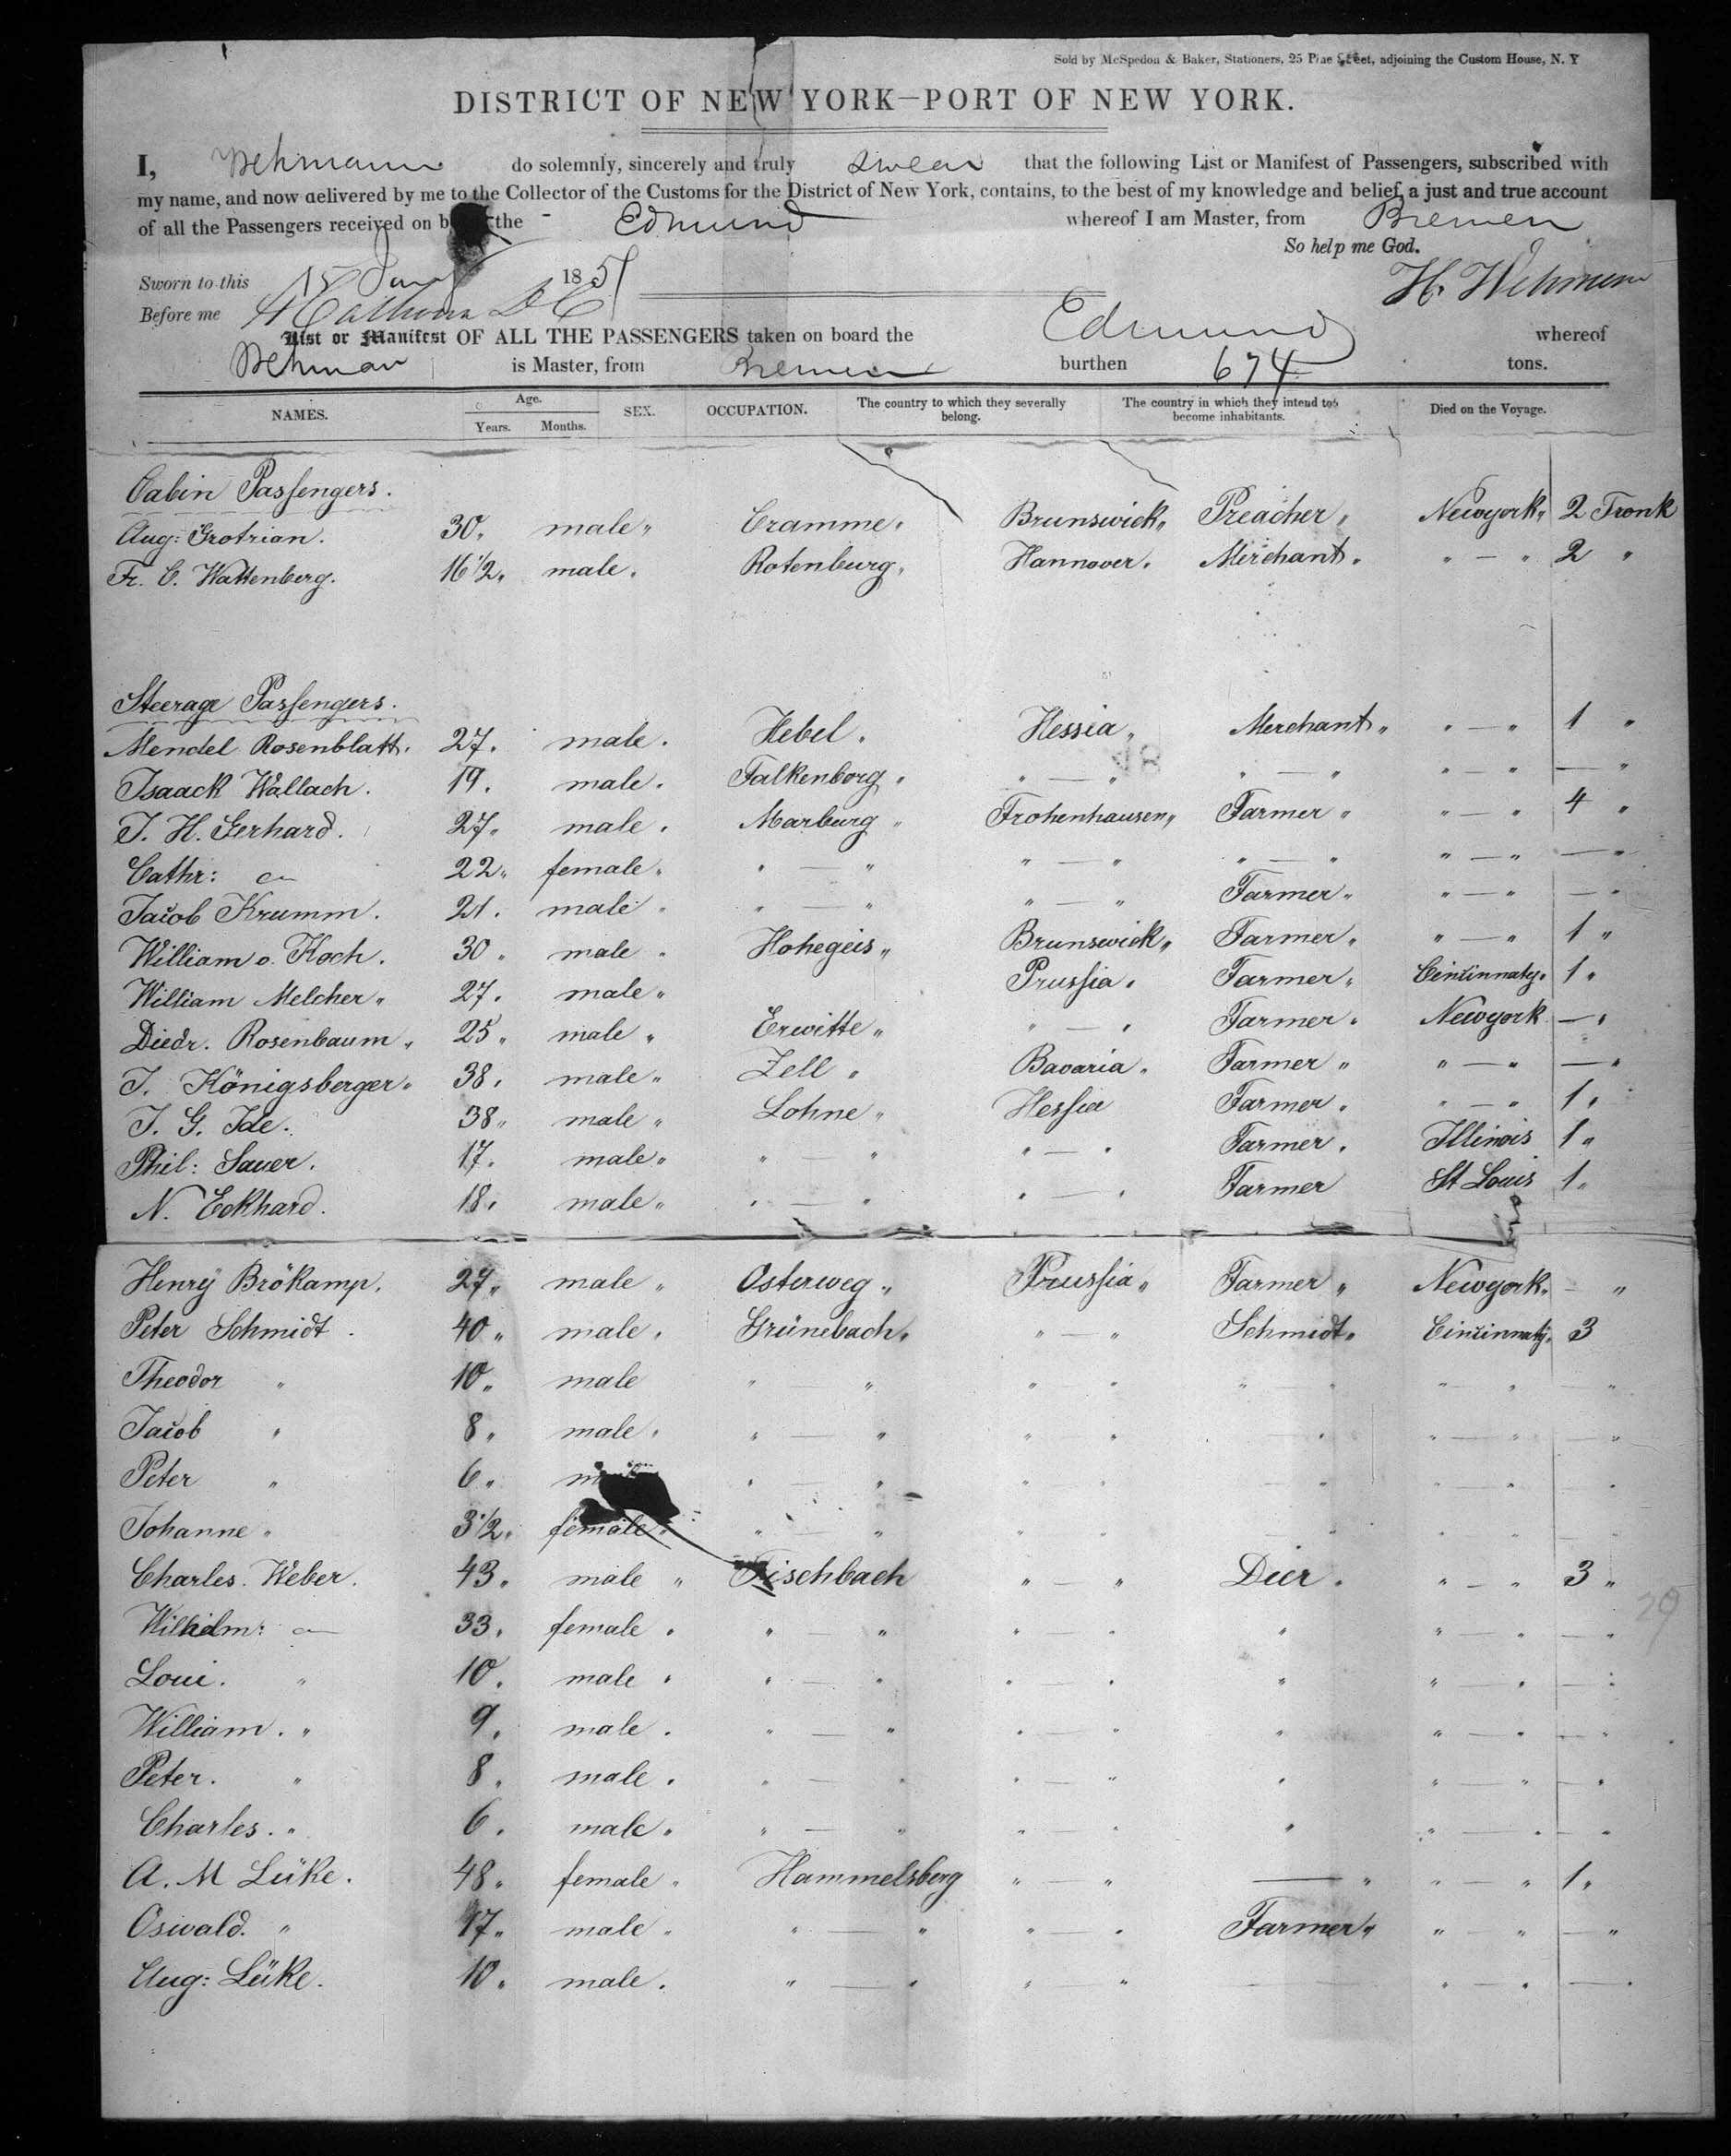 Sold by McSpedon & Baker, Stationers, 25 Pine Street, adjoining the Custom House, N. Y
DISTRICT OF NEW YORK—PORT OF NEW YORK.
I, Wehmann do solemnly, sincerely and truly swear that the following List or Manifest of Passengers, subscribed with
my name, and now delivered by me to the Collector of the Customs for the District of New York, contains, to the best of my knowledge and belief, a just and true account
of all the Passengers received on the Edmund whereof I am Master, from Bremen
So help me God.
Sworn to this 15 Jany 1851
H. Wehmann
Before me
List or Manifest OF ALL THE PASSENGERS taken on board the Edmund whereof
Wehman is Master, from Bremen burthen 674 tons.
NAMES. Age. Years. Months. SEX. OCCUPATION. The country to which they severally belong. The country in which they intend to become inhabitants. Died on the Voyage.
Cabin Passengers.
Aug: Grotrian. 30 " male " Cramme " Brunswick " Preacher " Newyork " 2 Tronk
Fr. C. Wattenberg. 16 1/2 " male " Rotenburg " Hannover " Merchant " " — " 2 "
Steerage Passengers.
Mendel Rosenblatt. 27 " male " Hebel " Hessia " Merchant " " — " 1 "
Isaack Wallach. 19 " male " Falkenborg " " — " " — " " — " — "
J. H. Gerhard. 27 " male " Marburg " Frohenhausen " Farmer " " — " 4 "
Cathr: 22 " female " " — " " — " " — " " — " — "
Jacob Krumm. 21 " male " " — " " — " Farmer " " — " — "
William o. Koch. 30 " male " Hohegeis " Brunswick " Farmer " " — " 1 "
William Melcher " 27 " male " Prussia " Farmer " Cincinnaty " 1 "
Diedr. Rosenbaum " 25 " male " Erwitte " " — " Farmer " Newyork — "
J. Königsberger " 38 " male " Zell " Bavaria " Farmer " " — " — "
J. G. Ide. 38 " male " Lohne " Hessia Farmer " " — " 1 "
Phil: Sauer. 17 " male " " — " " — " Farmer " Illinois 1 "
N. Eckhard. 18 " male " " — " " — " Farmer St Louis 1 "
Henry Brökamp. 27 " male " Osterweg " Prussia " Farmer " Newyork " — "
Peter Schmidt. 40 " male " Grünebach " " — " Schmidt " Cincinnaty " 3
Theodor " 10 " male " — " " — " " — " " — " — "
Jacob " 8 " male " " — " " " " " — " — "
Peter " 6 " " — " " — " — " — " — "
Johanne " 3 1/2 " female " " — " " " — " " — " — "
Charles. Weber. 43 " male " Fischbach " — " Dier " " — " 3 "
Wilhelm: 33 " female " " — " " — " " " — " — "
Loui. " 10 " male " " — " " — " " " — " — "
William. " 9 " male " " — " " — " " " — " — "
Peter. " 8 " male " " — " " — " " " — " — "
Charles. " 6 " male " " — " " " " " — " — "
A. M Lüke. 48 " female " Hammelsberg " — " — " " — " 1 "
Oswald. " 17 " male " " — " " — " Farmer " " — " — "
Aug: Lüke. 10 " male " " — " " " — " — " —